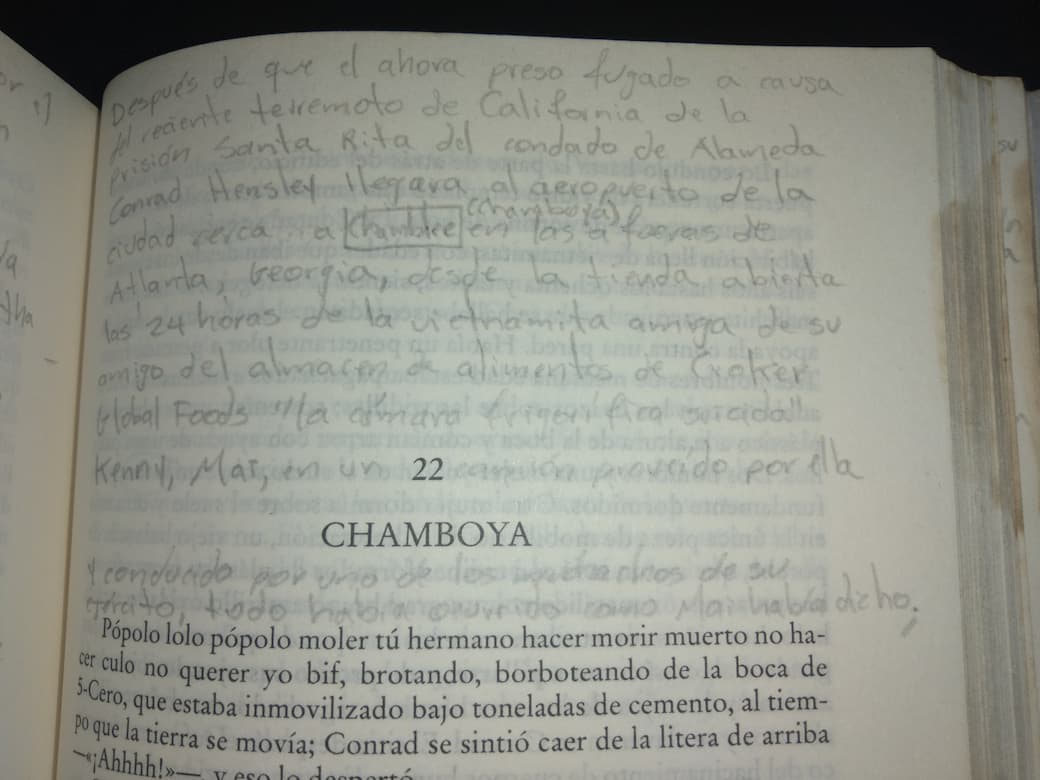 Después de que el ahora preso fugado a causa
del reciente terremoto de California de la
prisión Santa Rita del condado de Alameda
Conrad Hensley llegara al aeropuerto de la
(Chamboya)
ciudad cerca a Chamblee en las afueras de
Atlanta, Georgia, desde la tienda abierta
las 24 horas de la vietnamita amiga de su
amigo del almacén de alimentos de Croker
Global Foods "la cámara frigorífica suicida"
Kenny, Mai, en un camión provcido por ella
22
CHAMBOYA
y conducido por uno de los muchachos de su
ejército, todo había ocurrido como Mai había dicho;
Pópolo lolo pópolo moler tú hermano hacer morir muerto no ha-
cer culo no querer yo bif, brotando, borboteando de la boca de
5-Cero, que estaba inmovilizado bajo toneladas de cemento, al tiem-
po que la tierra se movía; Conrad se sintió caer de la litera de arriba
—«¡Ahhhh!»— y eso lo despertó
su